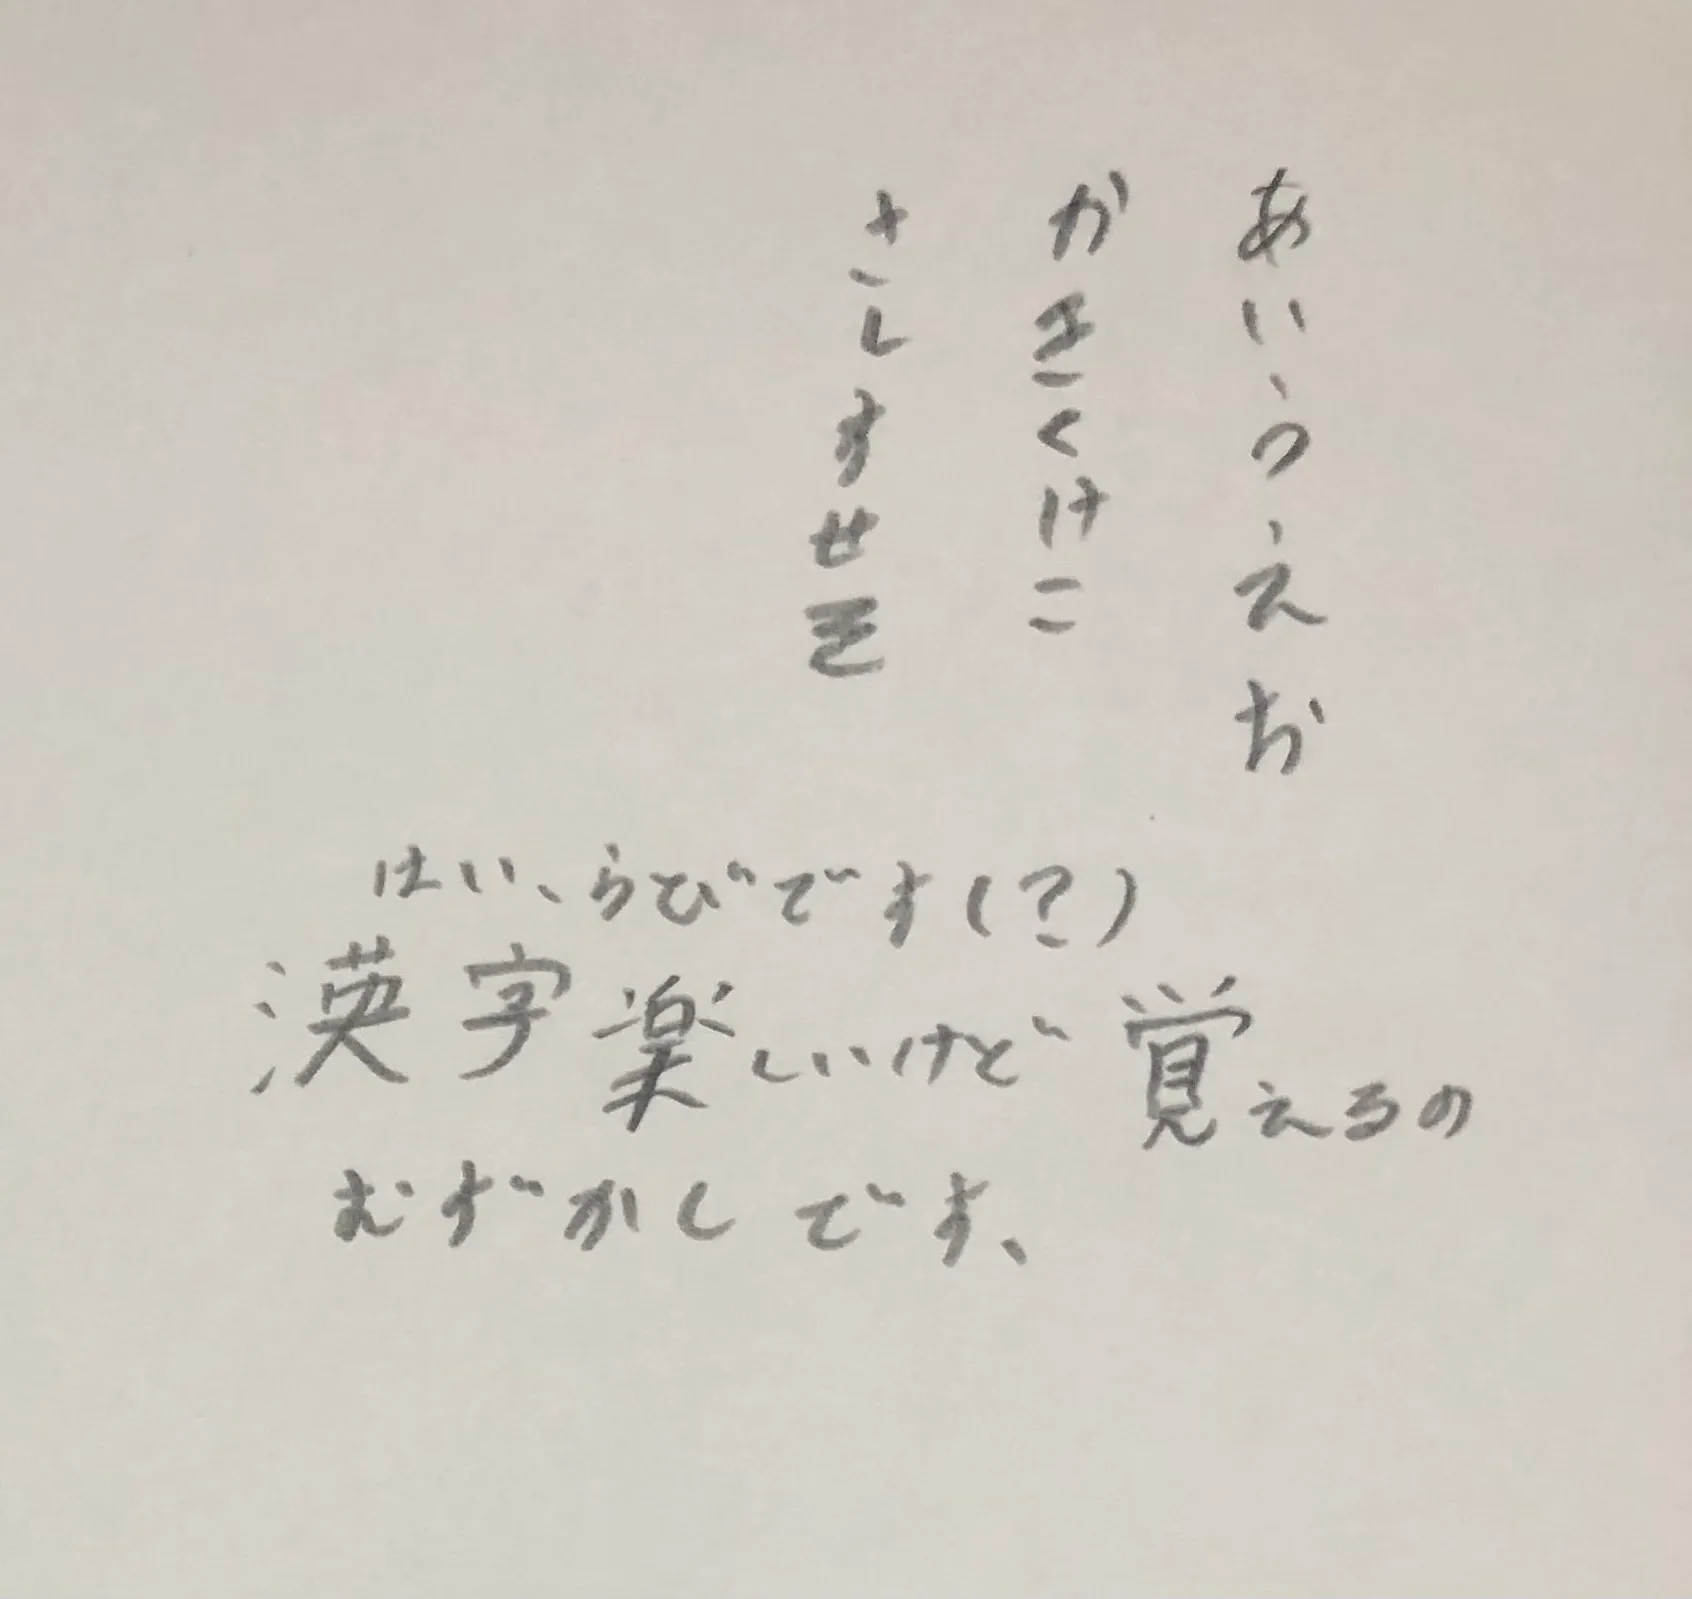 あいうえお
かきくけこ
さしすせそ
はい、らびです(?)
漢字楽しいけど覚えるの
むずかしです、